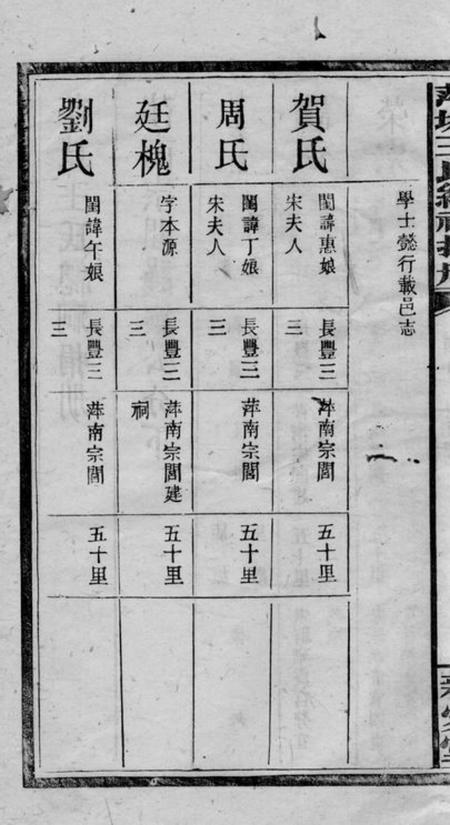 學士懿行載邑志
賀氏
閨諱惠娘
宋夫人
長豐三
三
萍南宗閭
五十里
周氏
閨諱丁娘
宋夫人
長豐三
三
萍南宗閭
五十里
廷槐
字本源
長豐三
三
萍南宗閭建
祠
五十里
劉氏
閨諱午娘
長豐三
三
萍南宗閭
五十里